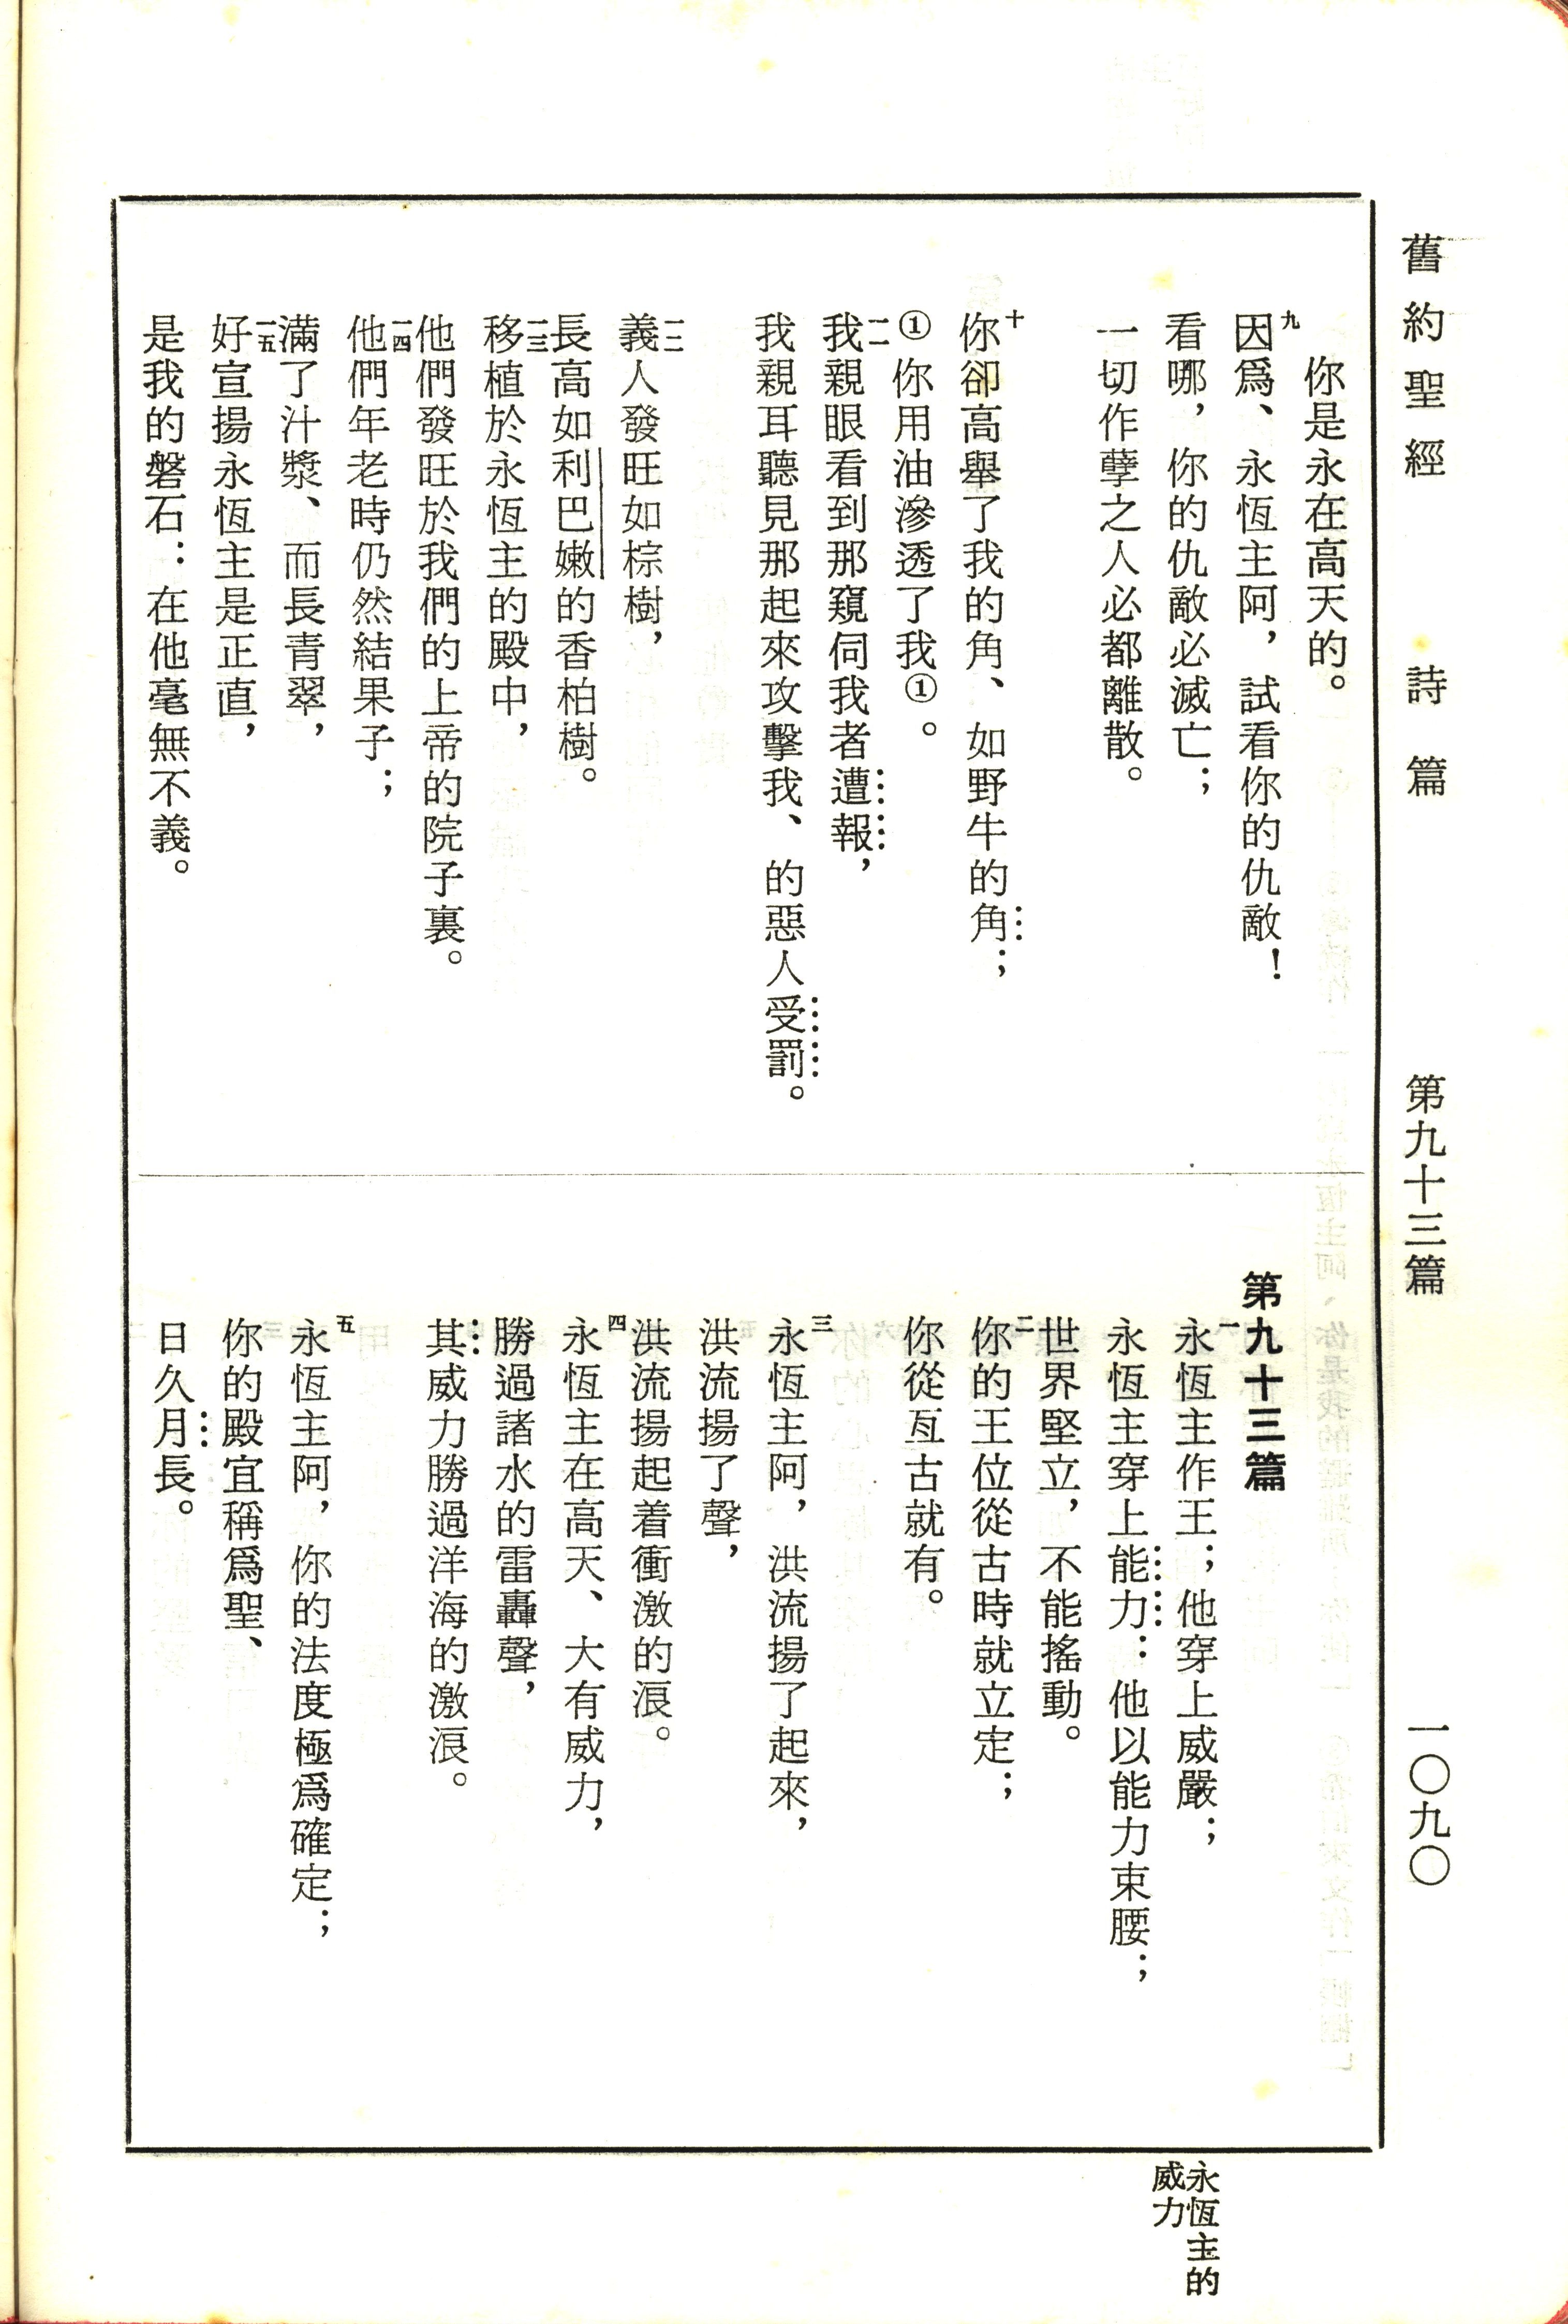 舊約聖經 詩篇 第九十三篇 一〇九〇
你是永在高天的。
九因爲、永恆主阿，試看你的仇敵！
看哪，你的仇敵必滅亡；
一切作孽之人必都離散。
十你卻高舉了我的角、如野牛的角；
①你用油滲透了我①。
一一我親眼看到那窺伺我者遭報，
我親耳聽見那起來攻擊我、的惡人受罰。
一二義人發旺如棕樹，
長高如利巴嫩的香柏樹。
一三移植於永恆主的殿中，
他們發旺於我們的上帝的院子裏。
一四他們年老時仍然結果子；
滿了汁漿、而長青翠，
一五好宣揚永恆主是正直，
是我的磐石：在他毫無不義。
第九十三篇
一永恆主作王；他穿上威嚴；
永恆主穿上能力：他以能力束腰；
世界堅立，不能搖動。
二你的王位從古時就立定；
你從亙古就有。
三永恆主阿，洪流揚了起來，
洪流揚了聲，
洪流揚起着衝激的浪。
四永恆主在高天、大有威力，
勝過諸水的雷轟聲，
其威力勝過洋海的激浪。
五永恆主阿，你的法度極爲確定；
你的殿宜稱爲聖、
日久月長。
永恆主的
威力